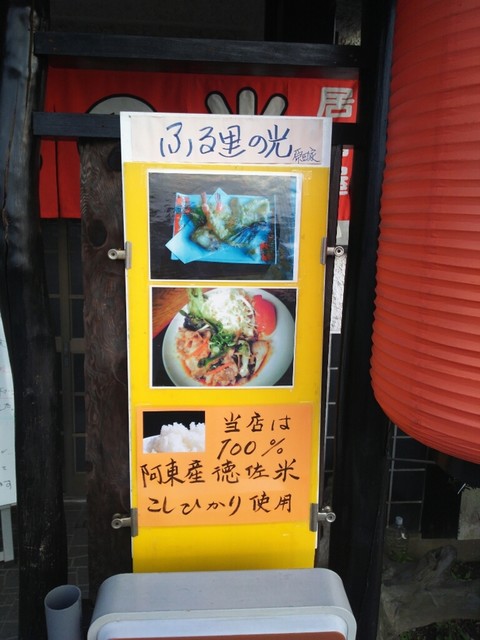 居
ふる里の光
当店は
100%
阿東産徳佐米
こしひかり使用